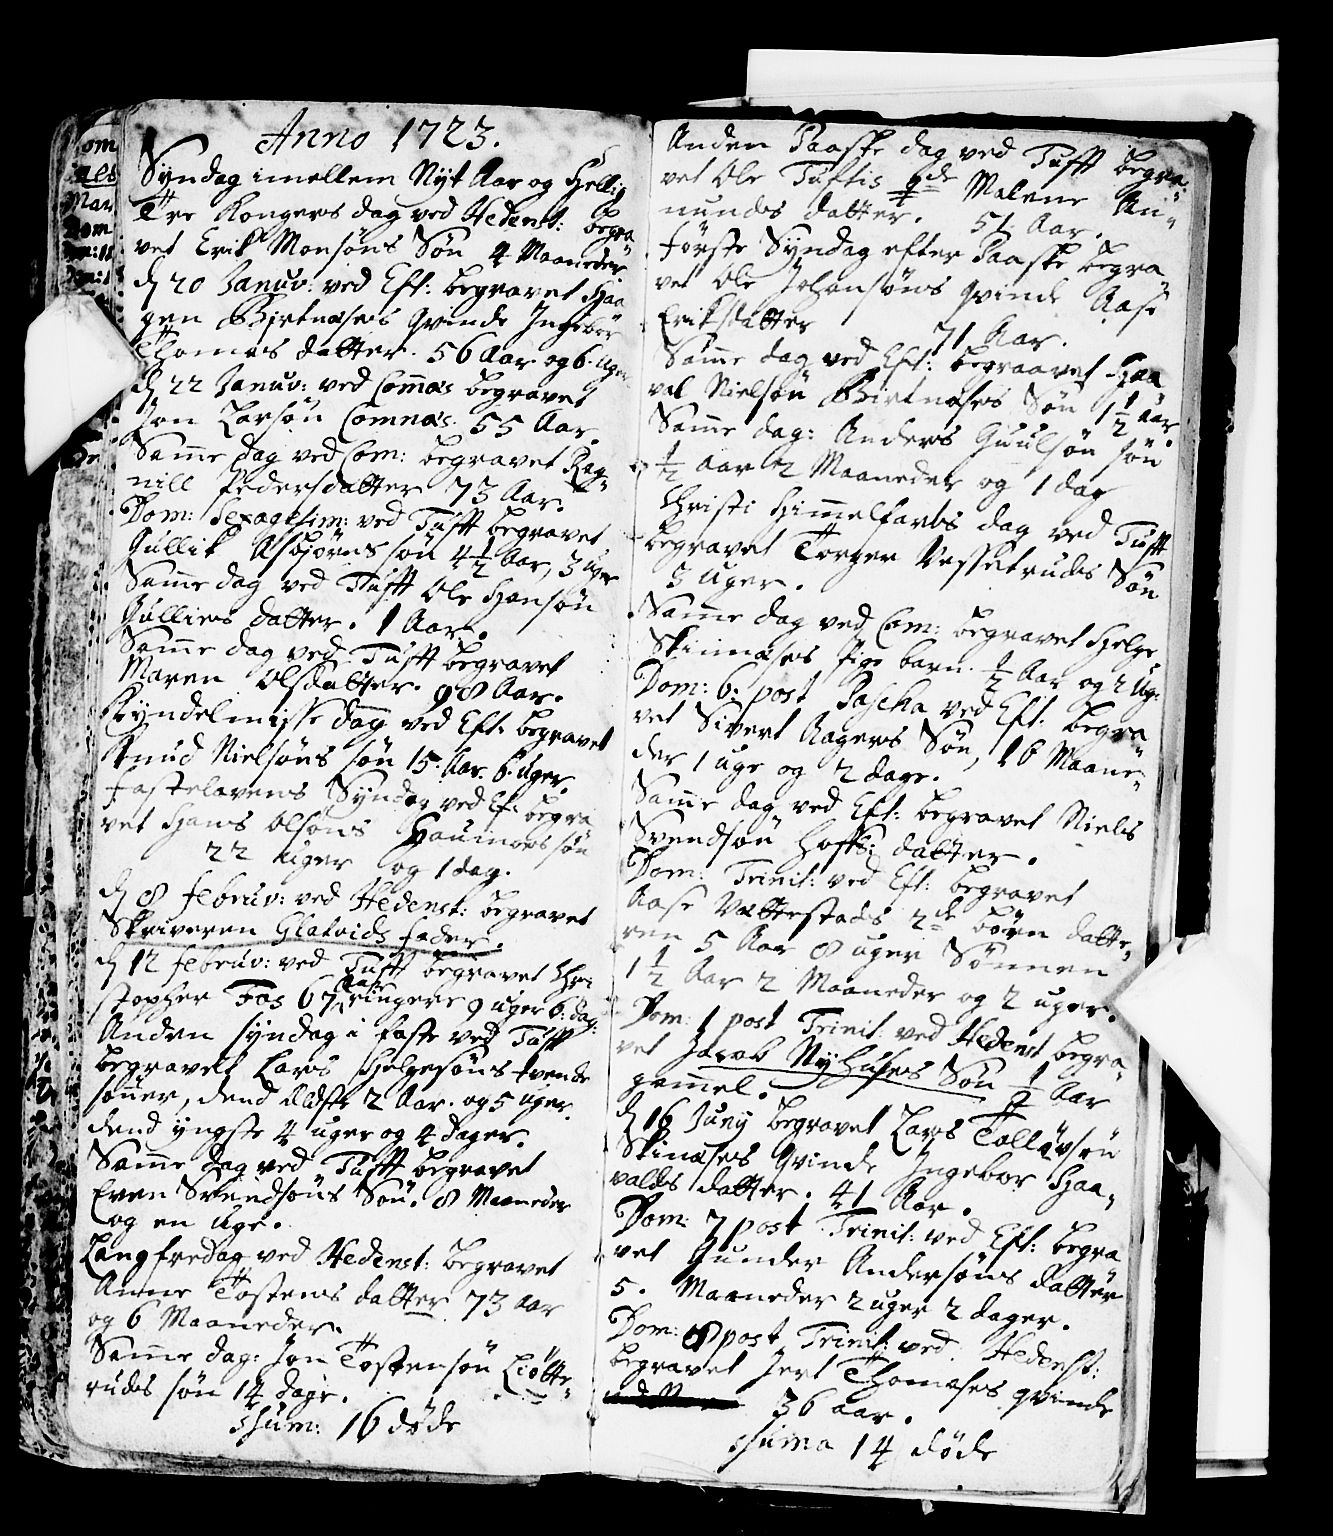 Anno 1723.
Syndag imellem Nyt Aar og Hellig
Tre Kongers dag ved Hedenst: begra
vet Erik Monsøns Søn 4 Maaneder
d 20 Januv: ved Eft: begravet Haa
gen Birtnæses Qvinde Ingebor
Thomas datter. 56 Aar og 6. uger
d 22 Januv: ved Comnæs begravet
Jon Larsøn Comnæs. 55 Aar.
Samme dag ved Com: begravet Rag¬
nill Pedersdatter 73 Aar.
Dom: Sexagesim: ved Tufft begravet
Gullik Asbjørns søn 4½ Aar, 3 uger
Samme dag ved Tufft Ole Hansøn
Gulliers datter. 1 Aar.
Samme dag ved Tufft begravet
Maren Olsdatter. 98 Aar.
Kyndelmisse dag ved Eft: begravet
Knud Nielsøns søn 15. Aar. 6. uger.
Fastelavens Syndag ved Ef: begra
vet Hans Olsøns søn
22 uger og 1 dag.
d 8 februv: ved Hedenst: begravet
Skriveren Glatvids fader.
d 12 februv: ved Tufft begravet Chri
stopher Fos 67 Aar ringere 9 uger 6: dag:
Anden syndag i faste ved Tufft
begravelt Lars Helgesøns tvende
sønner, dend Eldste 2 Aar. og 5 uger.
dend yngste 4 uger og 4 dager.
Samme dag ved Tufft begravet
Even Svendsøns Søn. 8 Maaneder
og en Uge.
Langfredag ved Hedenst: begravet
Anne Tostens datter 73 aar
og 6 Maaneder.
Samme dag: Jon Tostensøn Liøtte¬
ruds søn 14 dage.
Sum: 16 døde
Anden Paaske dag ved Tufft begra¬
vet Ole Tuftis Qde Malene An¬
nunds datter. 51. Aar.
Første Syndag efter Paaske begra
vet Ole Johansøns qvinde Aase
Eriksdatter 71 Aar.
Samme dag ved Eft: begraavet Haa
val Nielsøn Birtnæses Søn 1½ aar.
Samme dag: Anders Guulsøn søn
½ aar 2 Maaneder og 1 dag
Christi Himmelfarts dag ved Tufft
begravet Torger Vessetruds Søn
3 uger.
Samme dag ved Com: begravet Helge
Skinnæses pige barn ½ Aar og 2 Ug:
Dom: 6. post Pascha ved Eft: begra
vet Sivert Aagers Søn, 16 Maane¬
der 1 uge og 2 dage.
Samme dag ved Eft: begravet Niels
Svendsøn Hoffs: datter.
Dom: Trinit: ved Eft: begravet
Aase Vattestads 2de børn datte¬
ren 5 Aar 8 uger Sønnen
1½ Aar 2 Maaneder og 2 uger.
Dom: 1 post Trinit: ved Hedenst begra¬
vet Jacob Nyhuses Søn ½ Aar
gammel.
d 16 Juny begravet Lars Tolløvsøn
Skinæses Qvinde Ingebor Haa¬
valds datter. 41 Aar.
Dom: 7 post Trinit: ved Eft: begra
vet Gunder Andersøns datter
5. Maaneder 2 uger 2 dager.
Dom: 8 post Trinit: ved Hedenst:
begravet Jert Thomases qvinde
36 aar.
Suma 14 døde